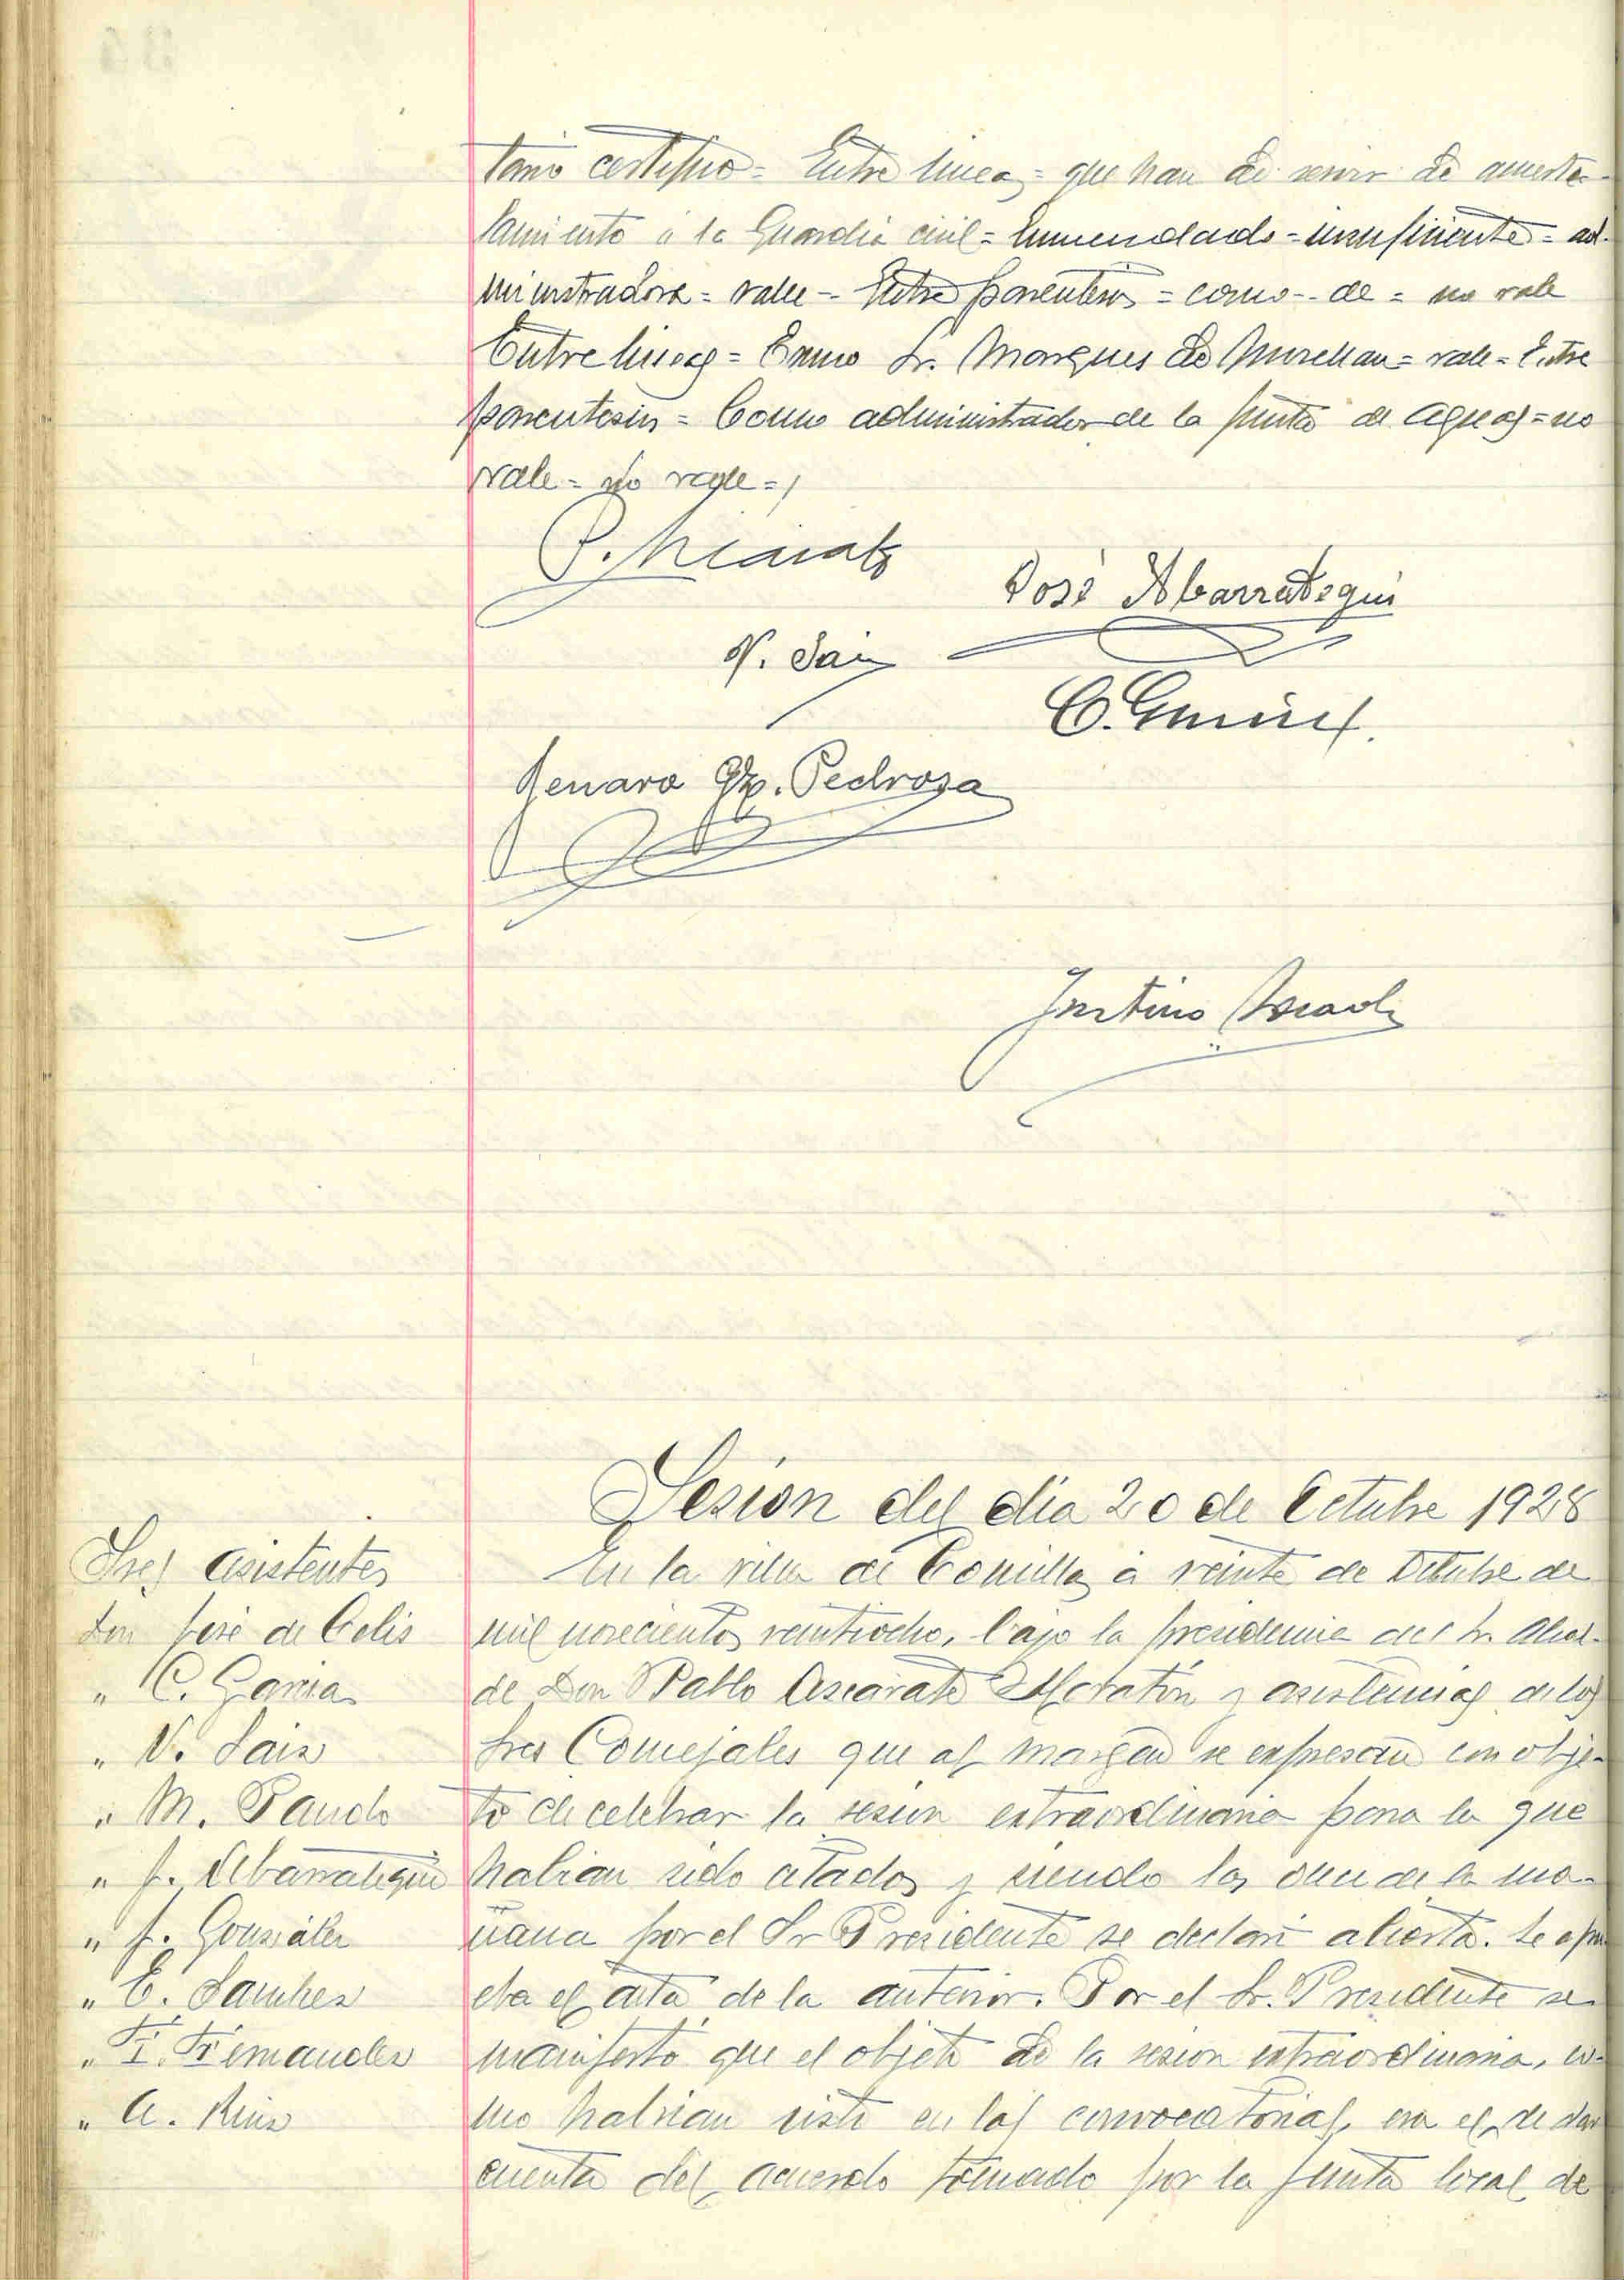 tario certifico = Entre lineas = que han de servir de acuarte-
lamiento á la Guardia civil = Enmendado = insuficiente = ad-
ministradora = vale = Entre parentesis = como - de = no vale
Entre lineas = Excmo Sr. Marques de Movellan = vale = Entre
parentesis = Como administrador de la Junta de Aguas = no
vale = no vale =
José Abarrategui
V. Sainz
Genaro Gz. Pedrosa
Justino
Sesión del día 20 de Octubre 1928
Sres Asistentes
Don José de Celis
" C. Garcia
" V. Sainz
" M. Pando
" J. Abarrategui
" J. González
" E. Sanchez
" F. Fernandez
" A. Ruiz
En la villa de Comillas á veinte de Octubre de
mil novecientos veintiocho, bajo la presidencia del Sr. Alcal-
de Don Pablo Ascarate Moratín y asistencias de los
Sres Concejales que al margen se expresan con obje-
to de celebrar la sesion extraordinaria para la que
habian sido citados y siendo las once de la ma-
ñana por el Sr Presidente se declaró abierta. Se aprue-
eba el acta de la anterior. Por el Sr. Presidente se
manifestó que el objeto de la sesion extraordinaria, co-
mo habrian visto en las convocatorias, era el de dar
cuenta del acuerdo tomado por la Junta local de